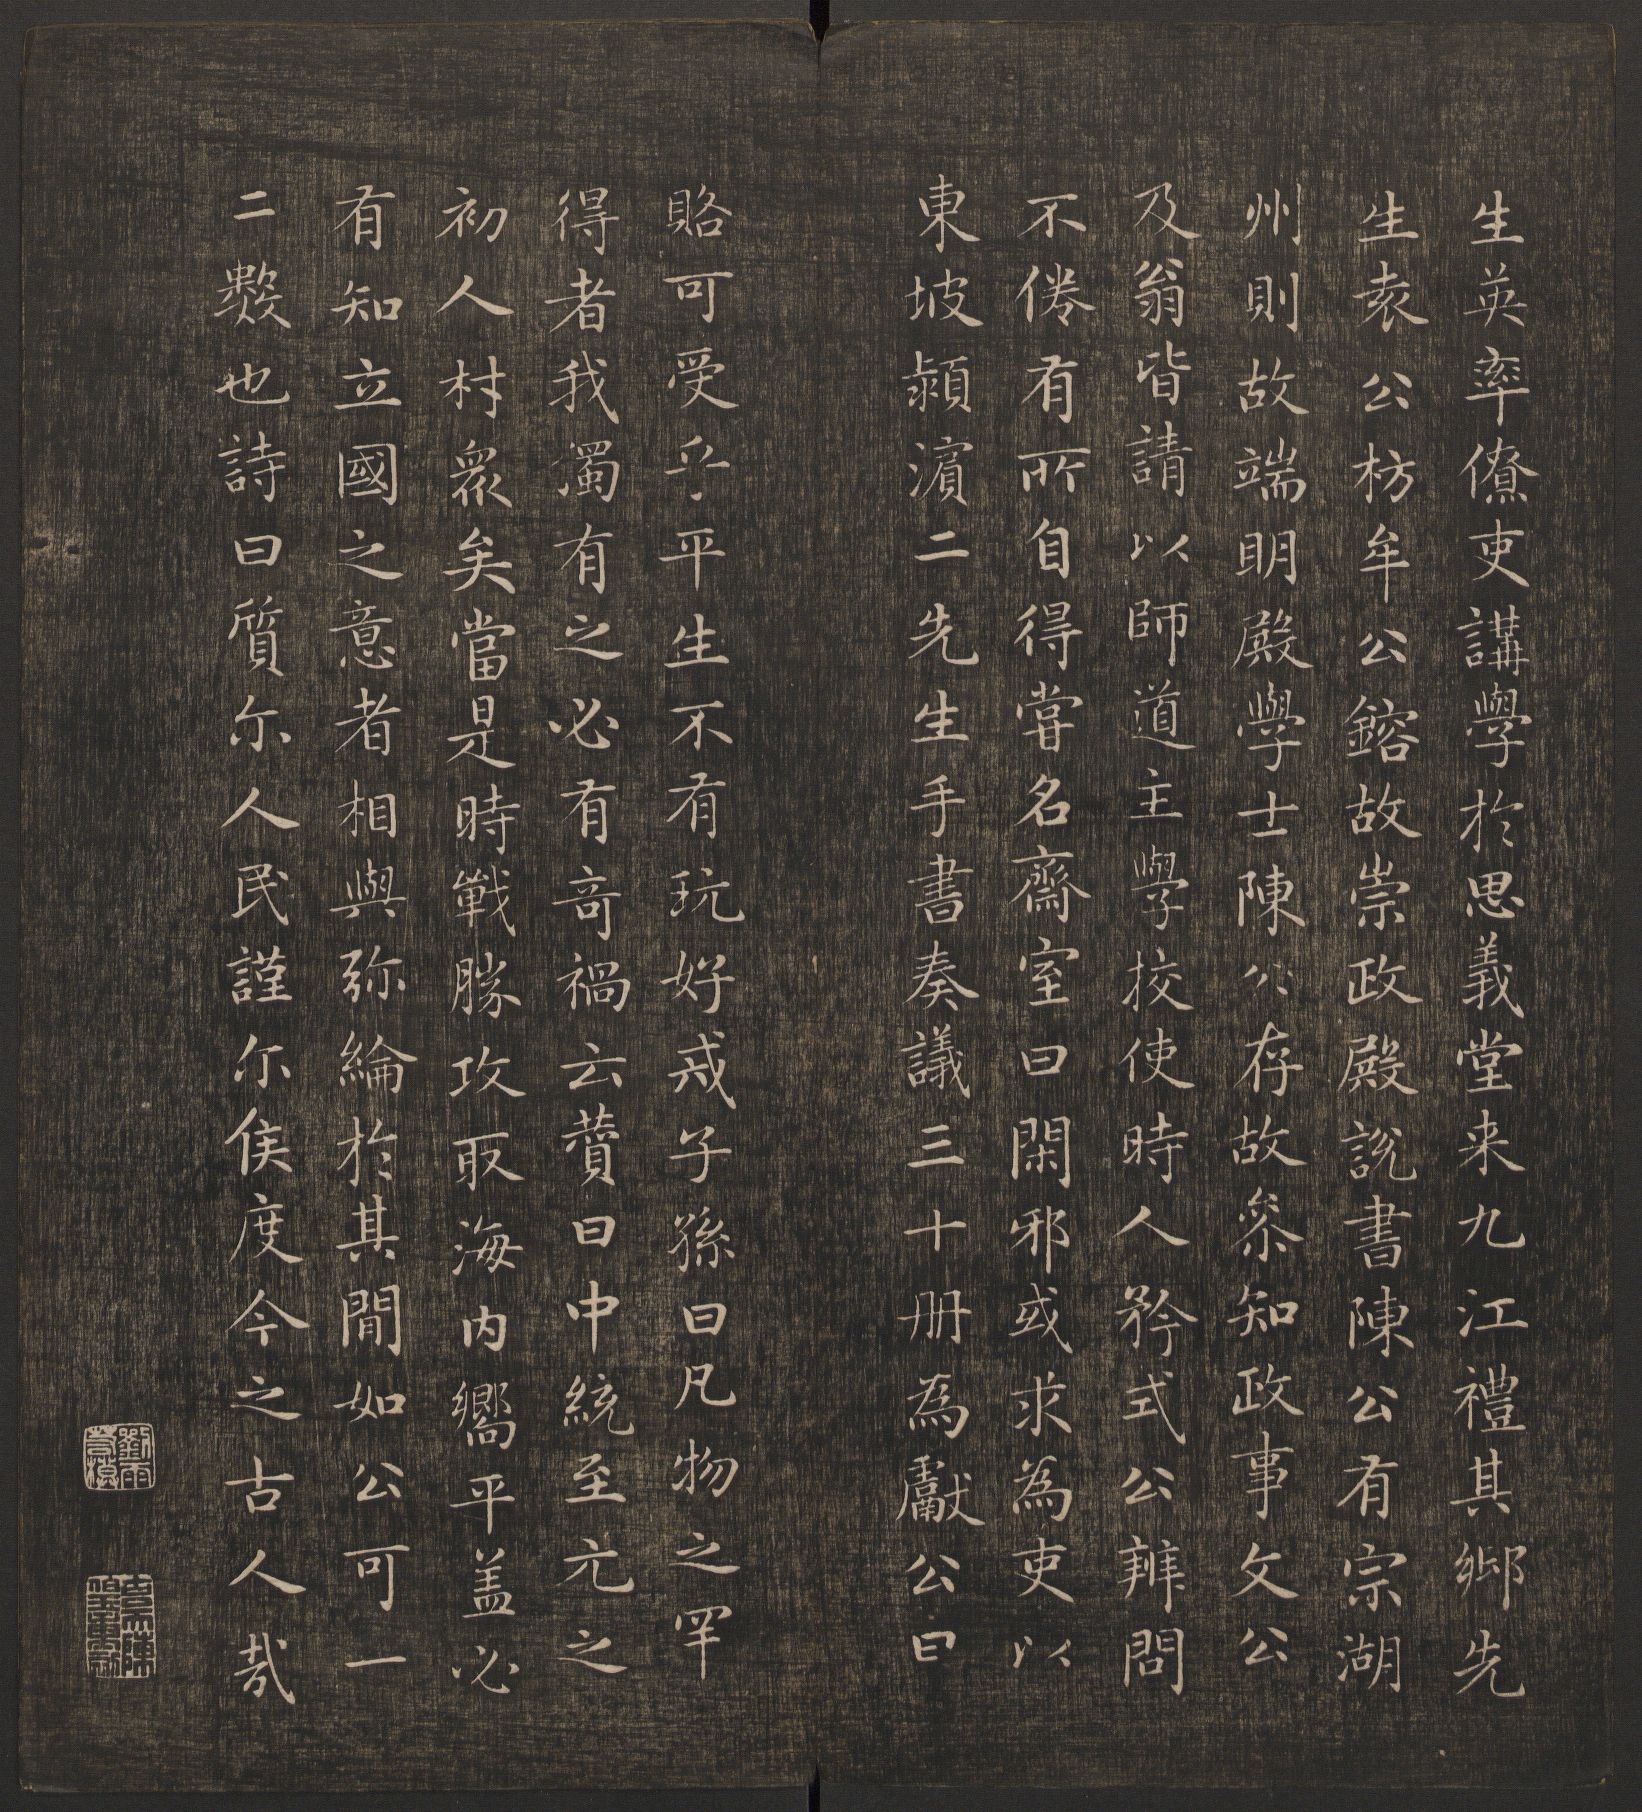 生英率僚吏講學於思義堂来九江禮其鄉先
生袁公枋牟公鎔故崇政殿說書陳公有宗湖
州則故端明殿學士陳公存故叅知政事文公
及翁皆請以師道主學校使時人矜式公辨問
不倦有所自得嘗名齋室曰閑邪或求為吏以
東坡潁濵二先生手書奏議三十册為獻公曰
賂可受乎平生不有玩好戒子孫曰凡物之罕
得者我濁有之必有竒禍云賛曰中統至元之
初人材衆矣當是時戰勝攻取海内嚮平盖必
有知立國之意者相與弥綸於其間如公可一
二數也詩曰質尓人民謹尓侯度今之古人哉